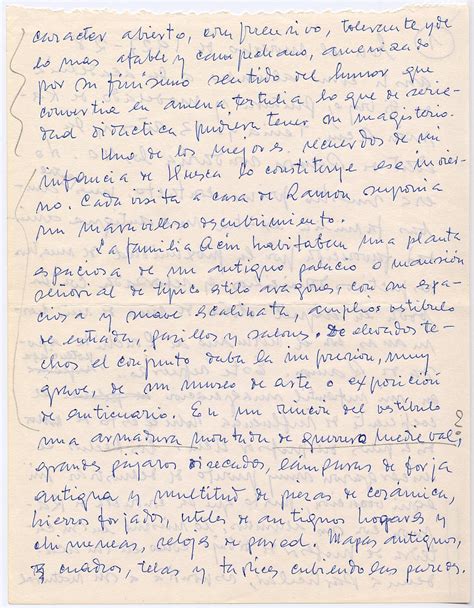 caracter abierto, comprensivo, tolerante y de
lo mas afable y campechano, amenizado
por su finisimo sentido del humor que
convertia en amena tertulia lo que de serie-
dad didactica pudiera tener su magisterio.
Uno de los mejores recuerdos de mi
infancia de Huesca lo constituye ese invier-
no. Cada visita a casa de Ramon suponia
un maravilloso descubrimiento.
La familia Acín habitaban una planta
espaciosa de un antiguo palacio o mansión
señorial de tipico estilo aragones, con su espa-
ciosa y suave escalinata, amplios vestibulo
de entrada, pasillos y salones. De elevados te-
chos el conjunto daba la impresion, muy
grave, de un museo de arte o exposición
de anticuario. En un rincon del vestíbulo
una armadura montada de guerrero medieval, ?
grandes pájaros disecados, lámparas de forja
antigua y multitud de piezas de cerámica,
hierros forjados, utiles de antiguos hogares y
chimeneas, relojes de pared. Mapas antiguos,
cuadros, telas y tapices cubriendo las paredes.